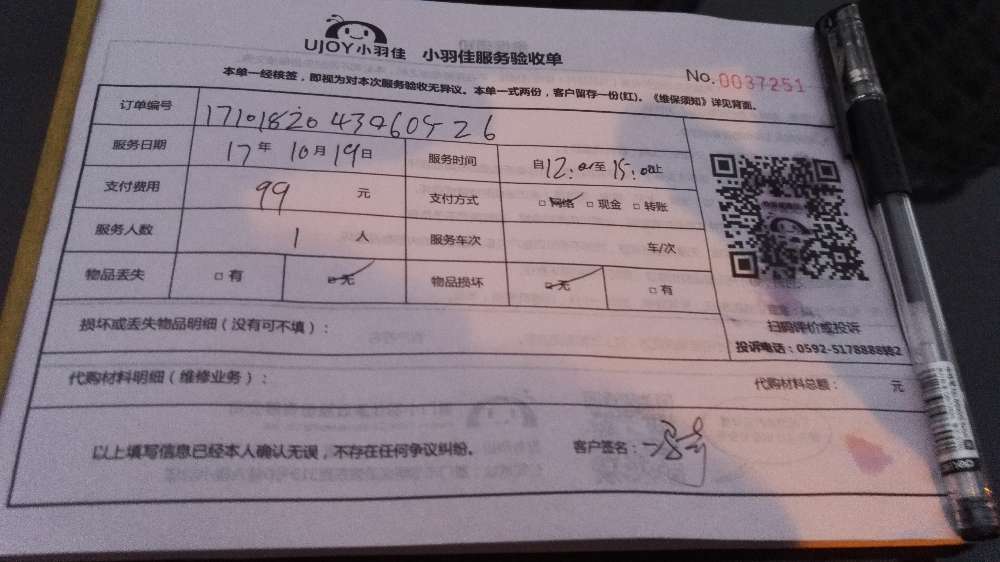 UJOY小羽佳 小羽佳服务验收单
No.0037251
本单一经核签，即视为对本次服务验收无异议。本单一式两份，客户留存一份(红)。《维保须知》详见背面。
订单编号
服务日期 17年10月19日 服务时间 自12:00至15:00止
支付费用 99 元 支付方式 □网络 □现金 □转账
服务人数 1 人 服务车次 车/次
物品丢失 □有 □无 物品损坏 □无 □有
损坏或丢失物品明细（没有可不填）：
扫码评价或投诉
投诉电话：0592-5178888转2
代购材料明细（维修业务）： 代购材料总额： 元
以上填写信息已经本人确认无误，不存在任何争议纠纷。 客户签名：